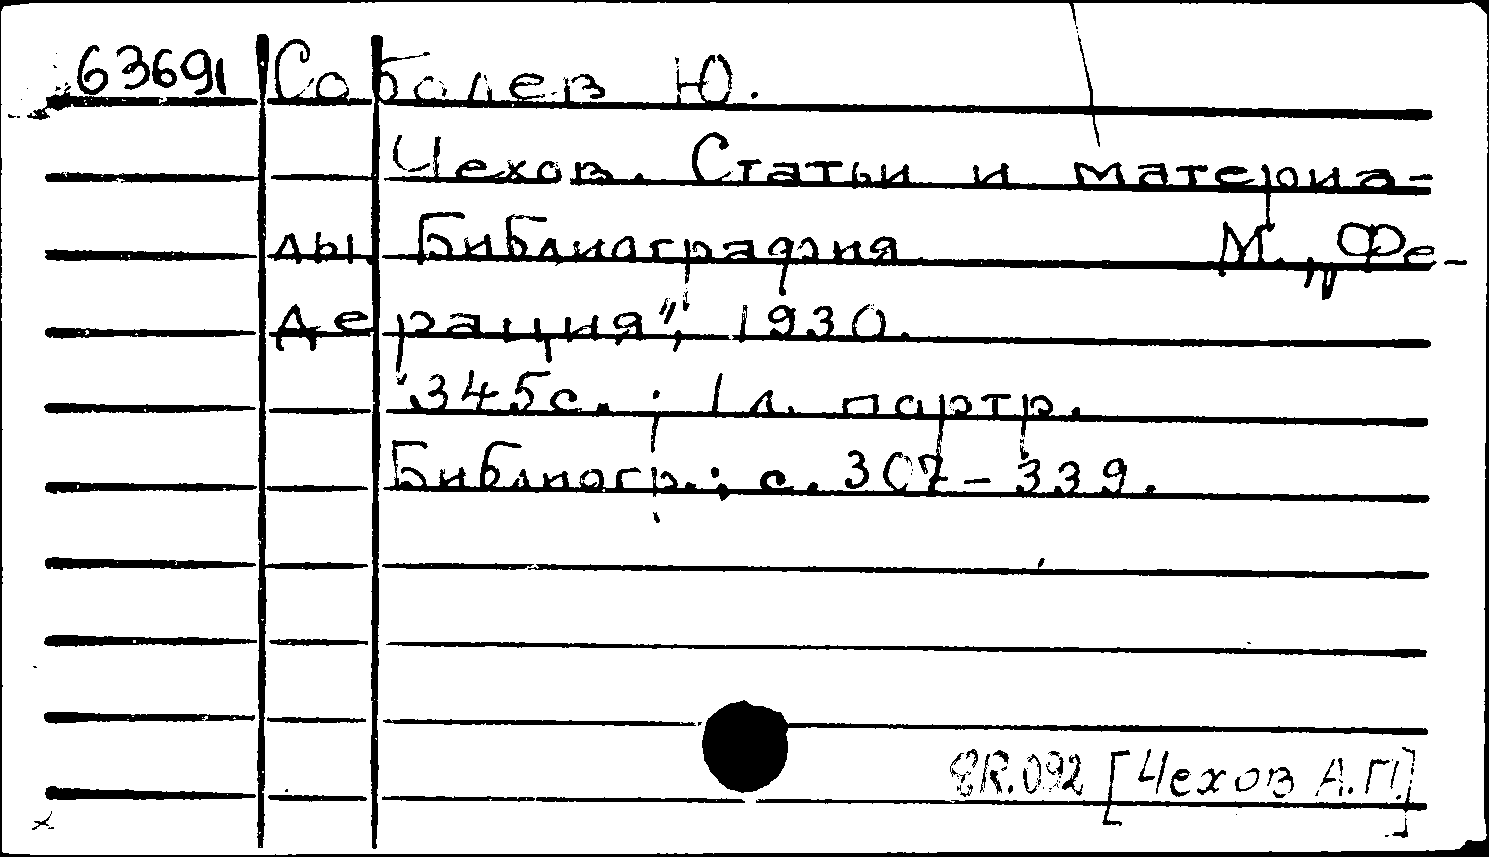 63691 Соболев Ю.
Чехов. Статьи и материа-
лы. Библиография. М., „Фе-
дерация", 1930.
345с. ; 1 л. портр.
Библиогр.: с. 307-339.
8R.092 [Чехов А.П.]